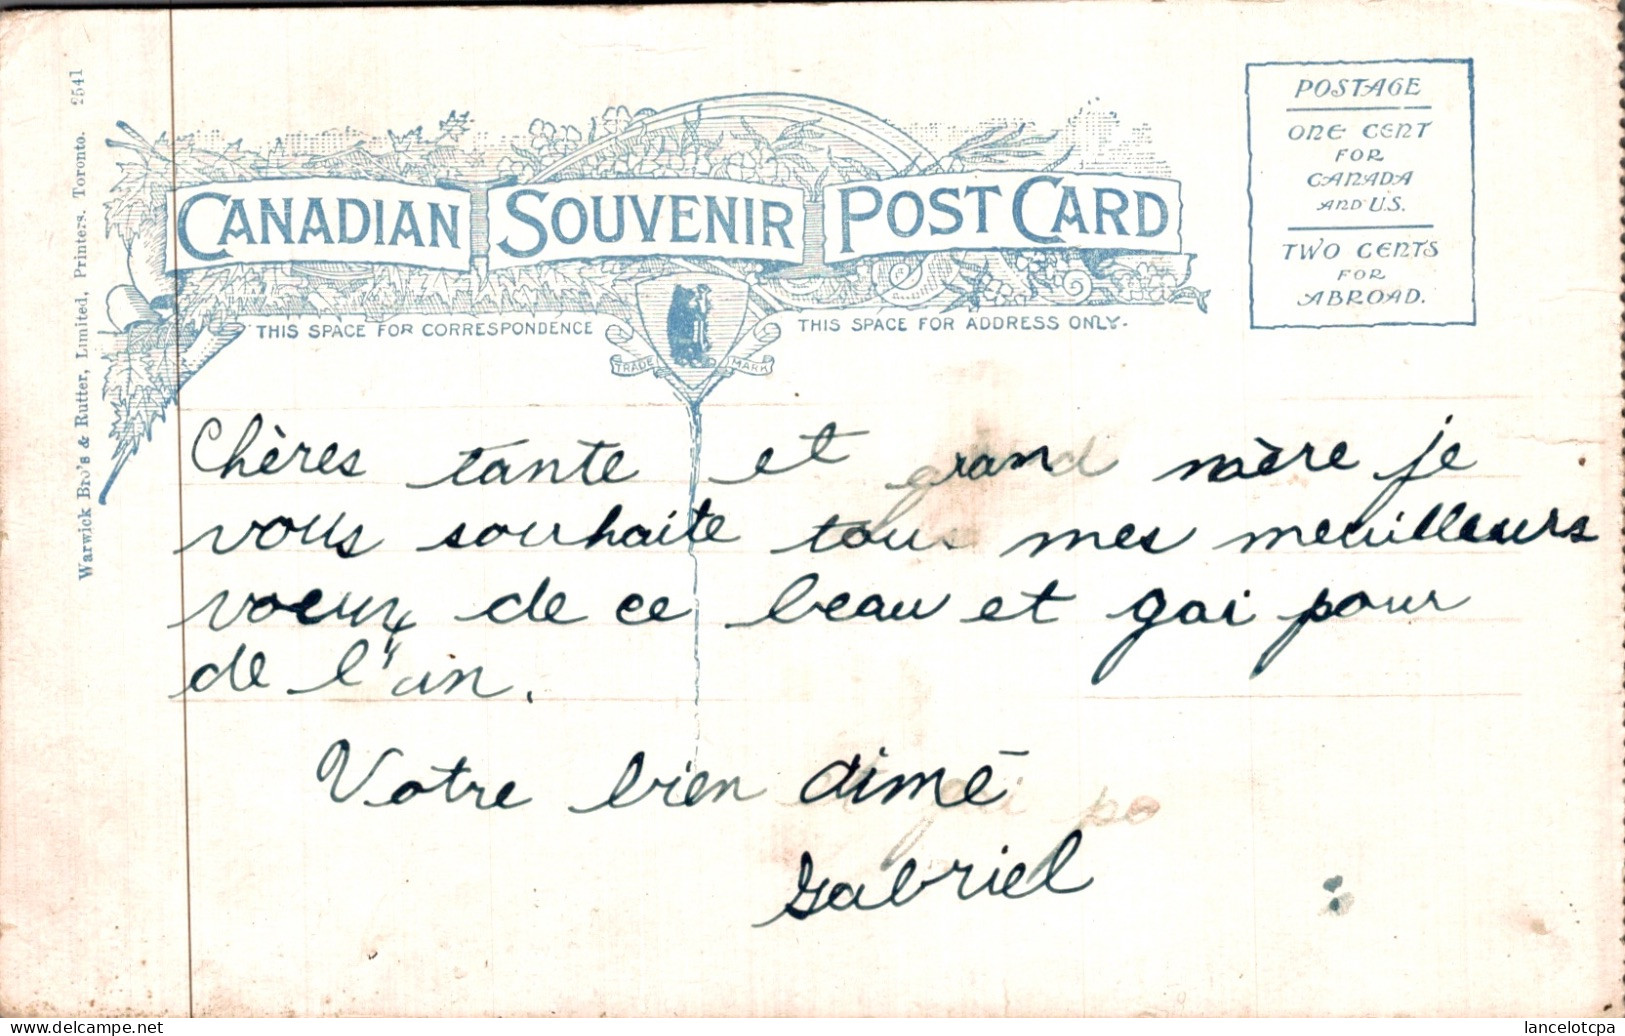 Warwick Bro's & Rutter, Limited, Printers. Toronto. 2541
CANADIAN SOUVENIR POST CARD
THIS SPACE FOR CORRESPONDENCE
THIS SPACE FOR ADDRESS ONLY.
TRADE MARK
POSTAGE
ONE CENT
FOR
CANADA
AND U.S.
TWO CENTS
FOR
ABROAD.
Chères tante et grand mère je
vous souhaite tous mes meuilleurs
voeux de ce beau et gai pour
de l'an.
Votre bien aimé
Gabriel
www.delcampe.net
lancelotcpa